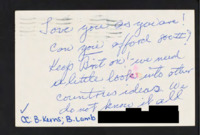 Love you as you are!
Can you afford got it?
Keep Don't on! we need
a little look into other
countries ideas. We
do not know it all
✓
CC: B. Kerns; B. Lomb